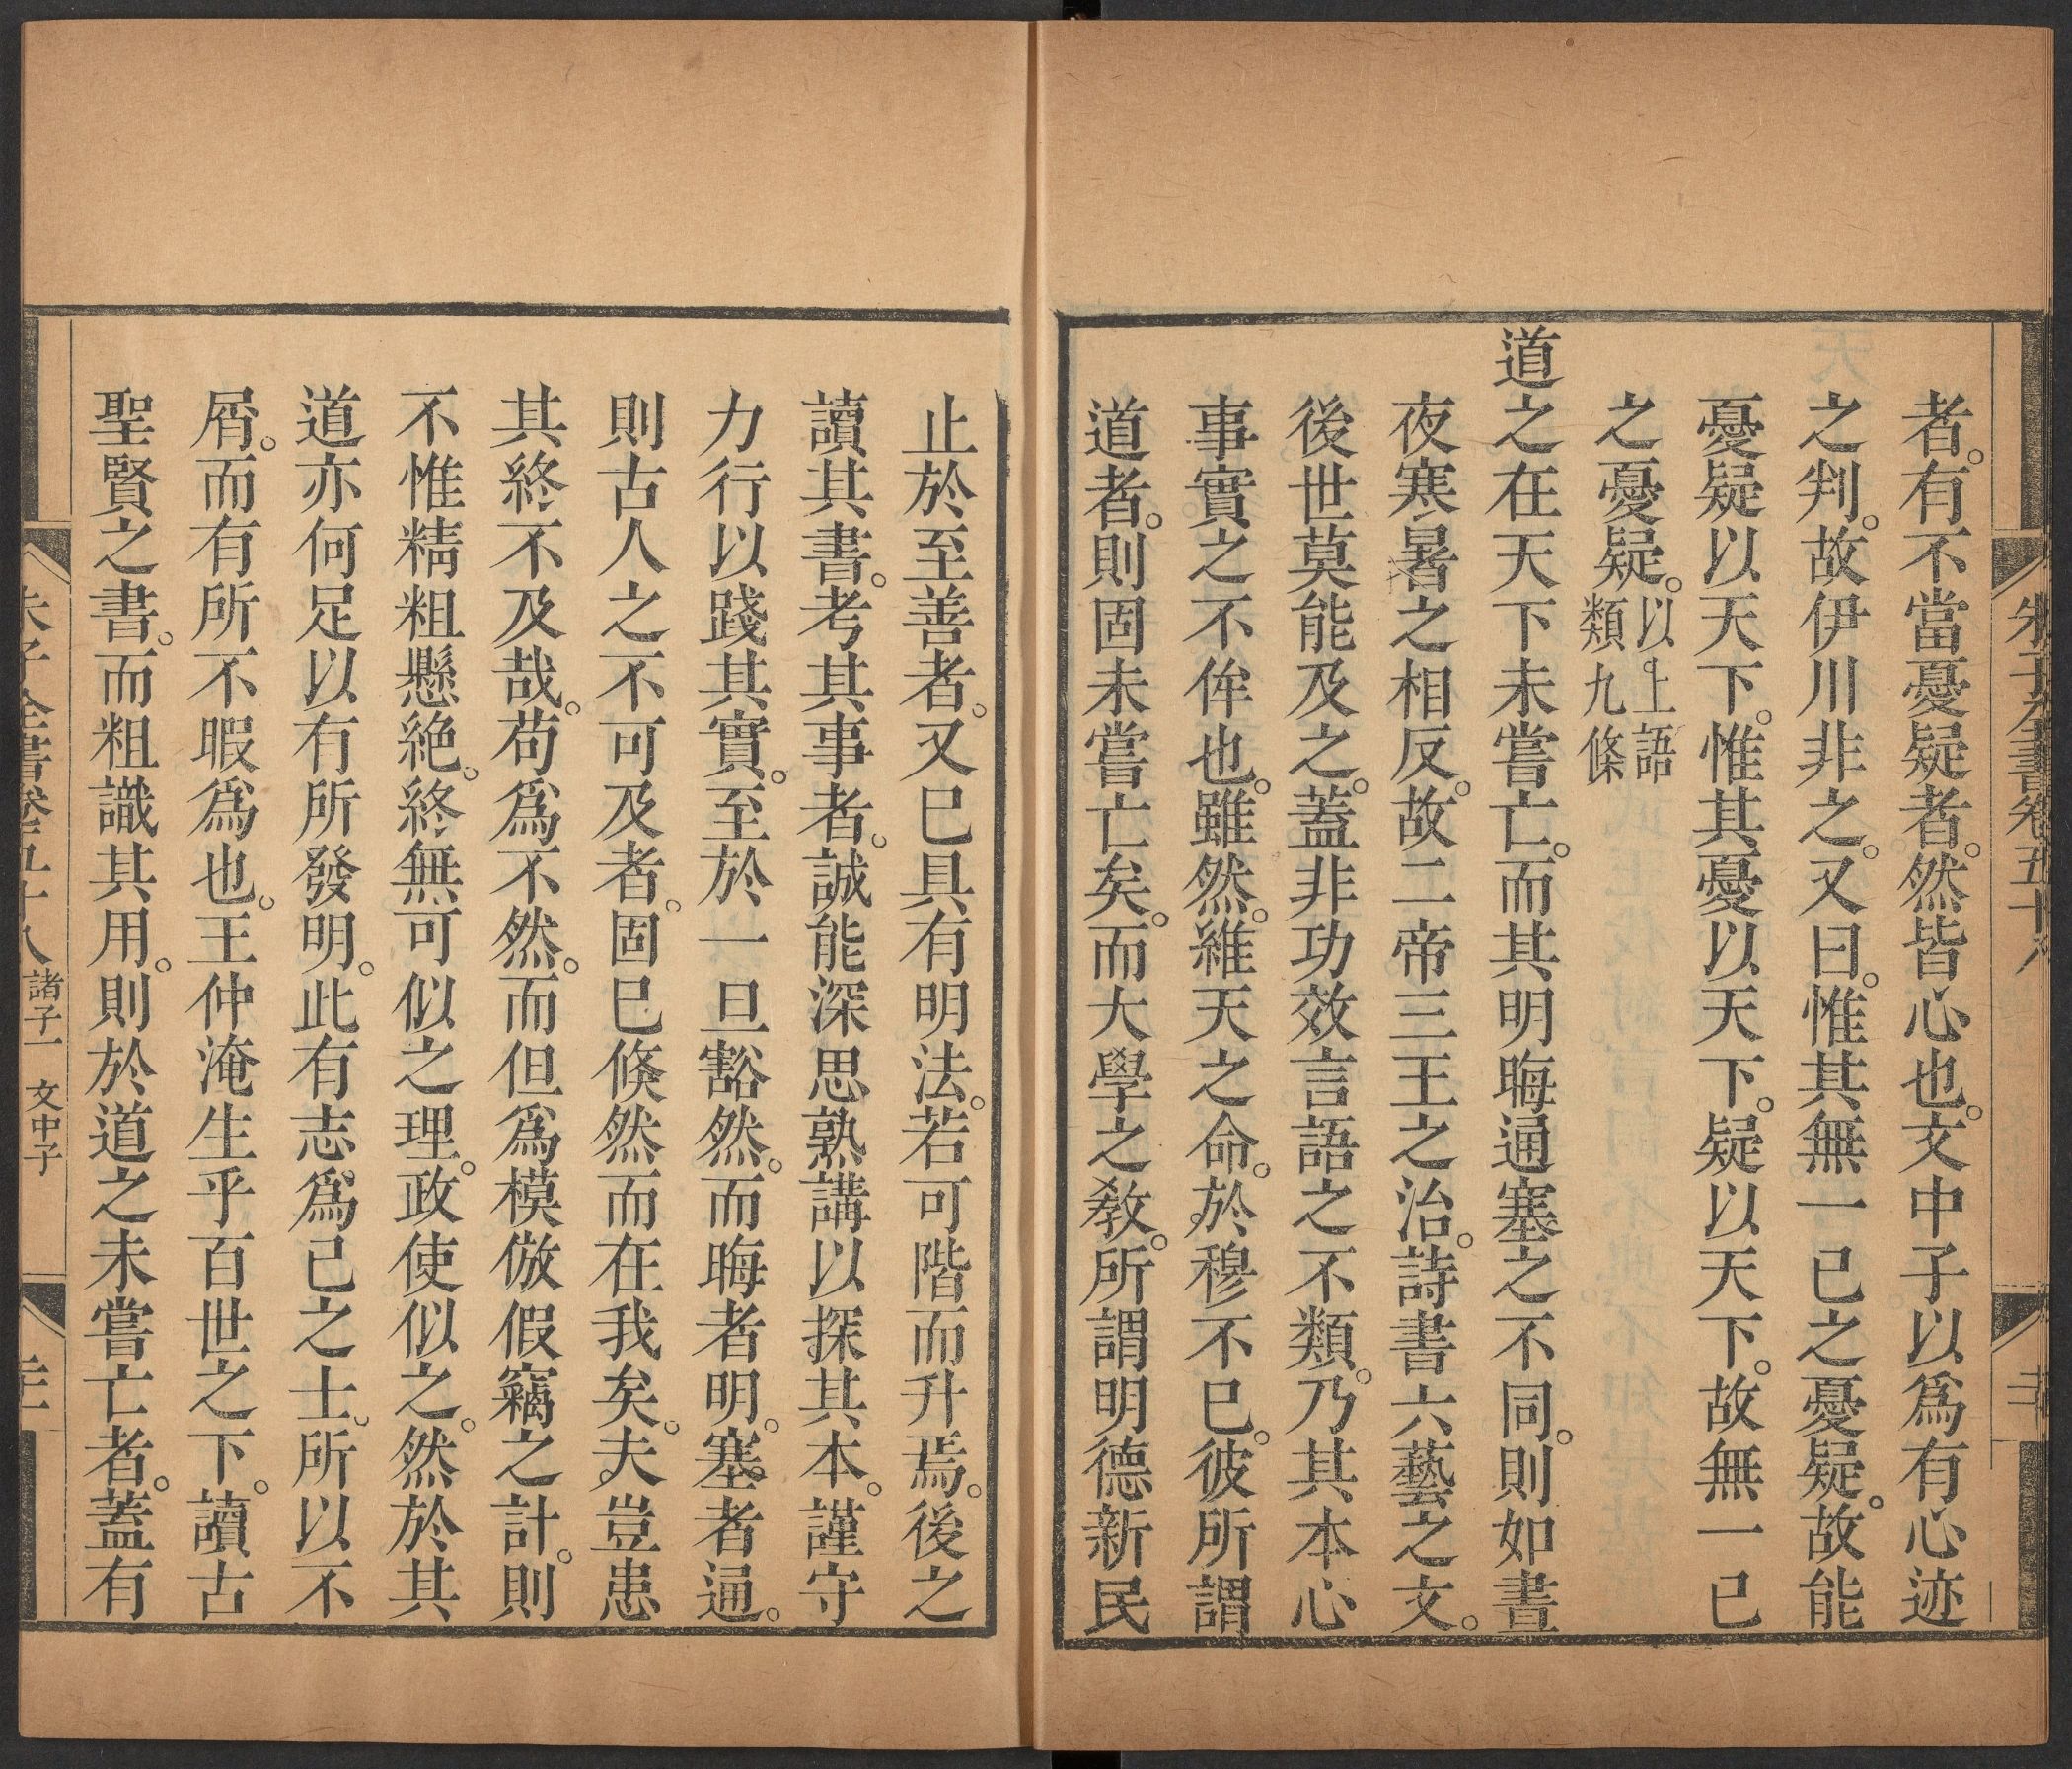 朱子全書卷五十八
者。有不當憂疑者。然皆心也。文中子以爲有心迹
之判。故伊川非之。又曰。惟其無一己之憂疑。故能
憂疑以天下。惟其憂以天下。疑以天下。故無一己
之憂疑。以上語類九條
道之在天下未嘗亡。而其明晦通塞之不同。則如晝
夜寒暑之相反。故二帝三王之治。詩書六藝之文。
後世莫能及之。蓋非功效言語之不類。乃其本心
事實之不侔也。雖然。維天之命。於穆不已。彼所謂
道者。則固未嘗亡矣。而大學之教。所謂明德新民
止於至善者。又已具有明法。若可階而升焉。後之
讀其書。考其事者。誠能深思熟講以探其本。謹守
力行以踐其實。至於一旦豁然。而晦者明。塞者通。
則古人之不可及者。固已倐然而在我矣。夫豈患
其終不及哉。苟爲不然。而但爲模倣假竊之計。則
不惟精粗懸絶。終無可似之理。政使似之。然於其
道亦何足以有所發明。此有志爲己之士。所以不
屑。而有所不暇爲也。王仲淹生乎百世之下。讀古
聖賢之書。而粗識其用。則於道之未嘗亡者。蓋有
朱子全書卷五十八 諸子一 文中子